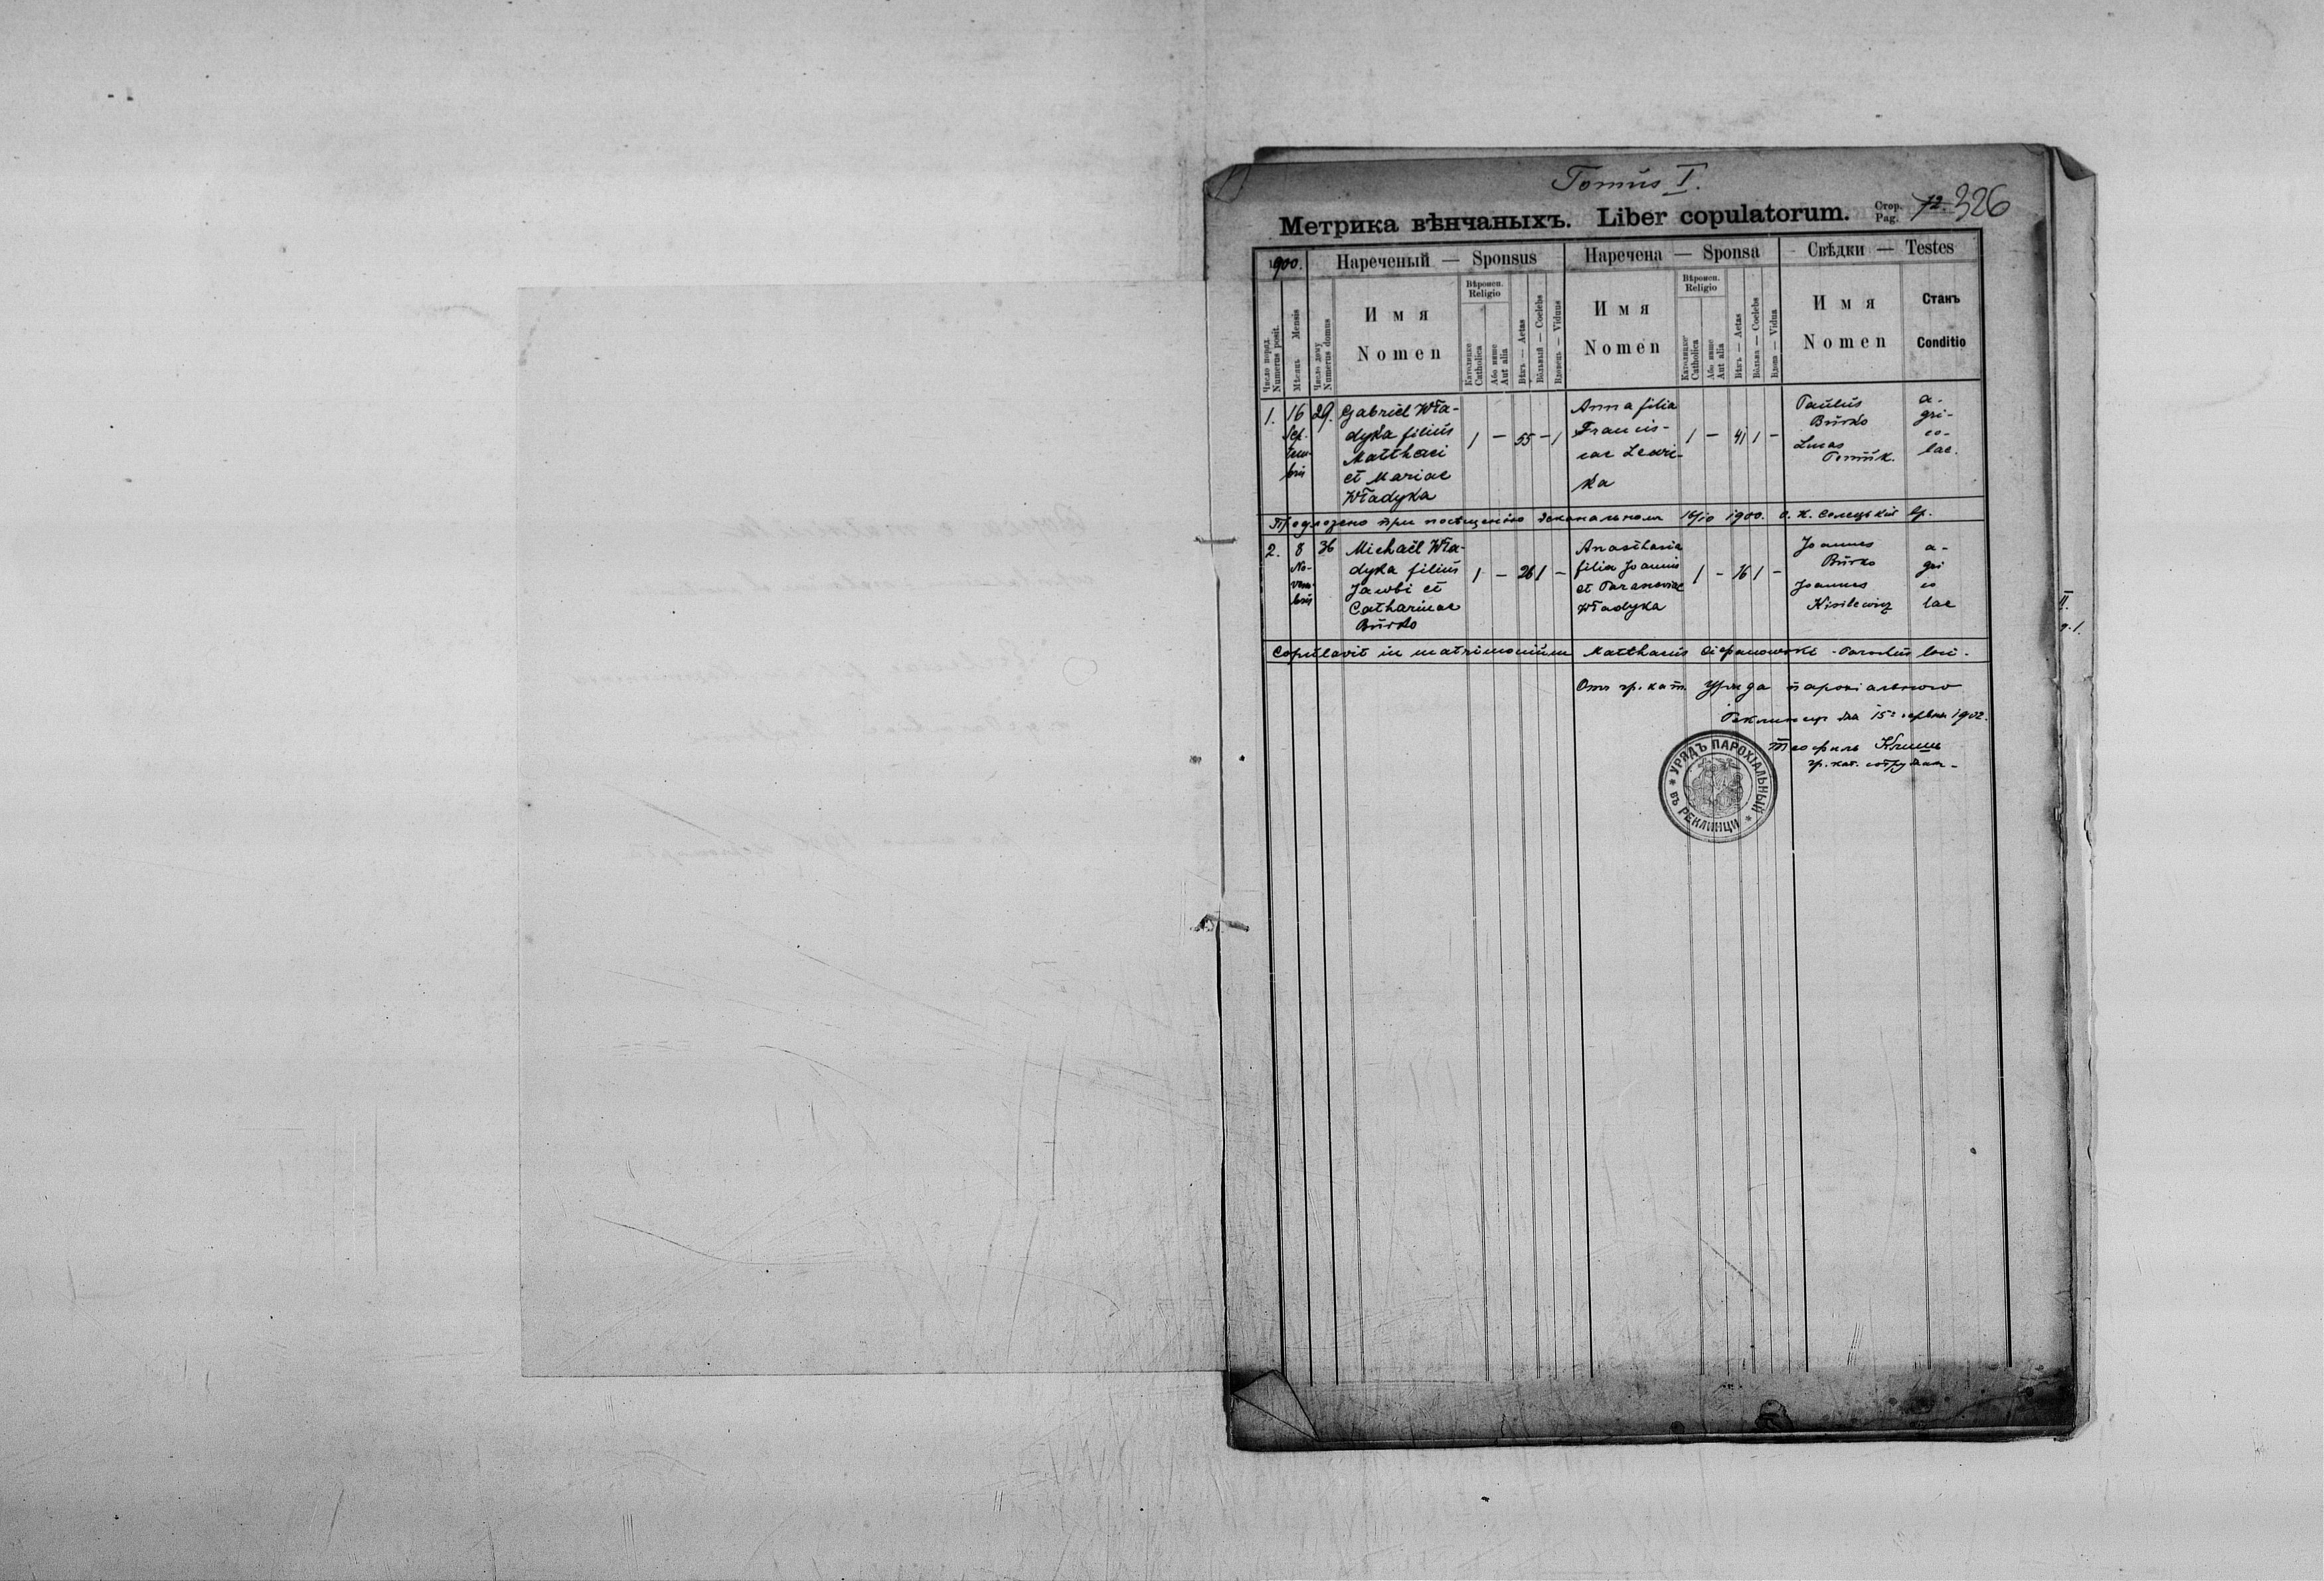 Tomus I.
Метрика вѣнчаныхъ. Liber copulatorum. Стор. Pag. 72. 326
1900. Нареченый — Sponsus Наречена — Sponsa Свѣдки — Testes
Число поряд. Numerus posit.
Мѣсяць Mensis
Число дому Numerus domus
И м я
Nomen
Вѣроисп. Religio
Католицке Catholica
Або инше Aut alia
Вѣкъ — Aetas
Вольный — Coelebs
Вдовець — Viduus
И м я
Nomen
Вѣроисп. Religio
Католицке Catholica
Або инше Aut alia
Вѣкъ — Aetas
Вольна — Coelebs
Вдова — Vidua
И м я
Nomen
Станъ
Conditio
1. 16 Sep-tem-bris 29.
Gabriel Wła-
dyka filius
Matthaei
et Mariae
Władyka
1 — 55 — 1
Anna filia
Francis-
cae
ka
1 — 41 1 —
Paulus
Burko
Lucas
a-
gri-
co-
lae.
Предложено при посѣщенію деканальномъ 16/10 1900. о. К. Солецькій
2. 8 No-vem-bris 36
Michaël Wła-
dyka filius
Jacobi et
Catharinae
Burko
1 — 26 1 —
Anasthasia
filia Joannis
et Parasceviae
Władyka
1 — 16 1 —
Joannes
Burko
Joannes
Kisilewicz
a-
gri
co
lae
Copulavit in matrimonium Matthaeus Parochus loci.
Отъ гр. кат. Уряда парохіального
Реклинец дня 15 червня 1902.
Теофиль
гр. кат. сотрудник
УРЯДЪ ПАРОХІАЛЬНЫЙ
РЕКЛИНЦИ
II.